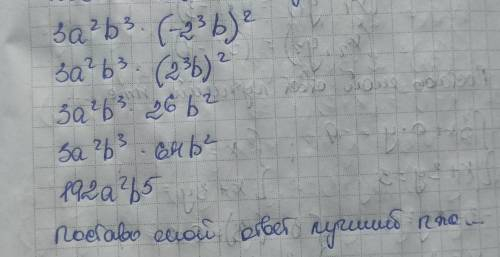 3a²b³ · (-2³b)²
3a²b³ · (2³b)²
3a²b³ 2⁶ b²
3a²b³ · 64b²
192a²b5
поставь мой ответ лучший пж